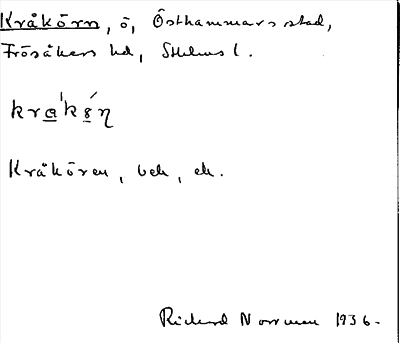 Kråkörn, ö, Östhammars stad,
Frösåkers hd, Sthlms l.
krakən
Kråkören, bek, ek.
Richard Norrman 1936.